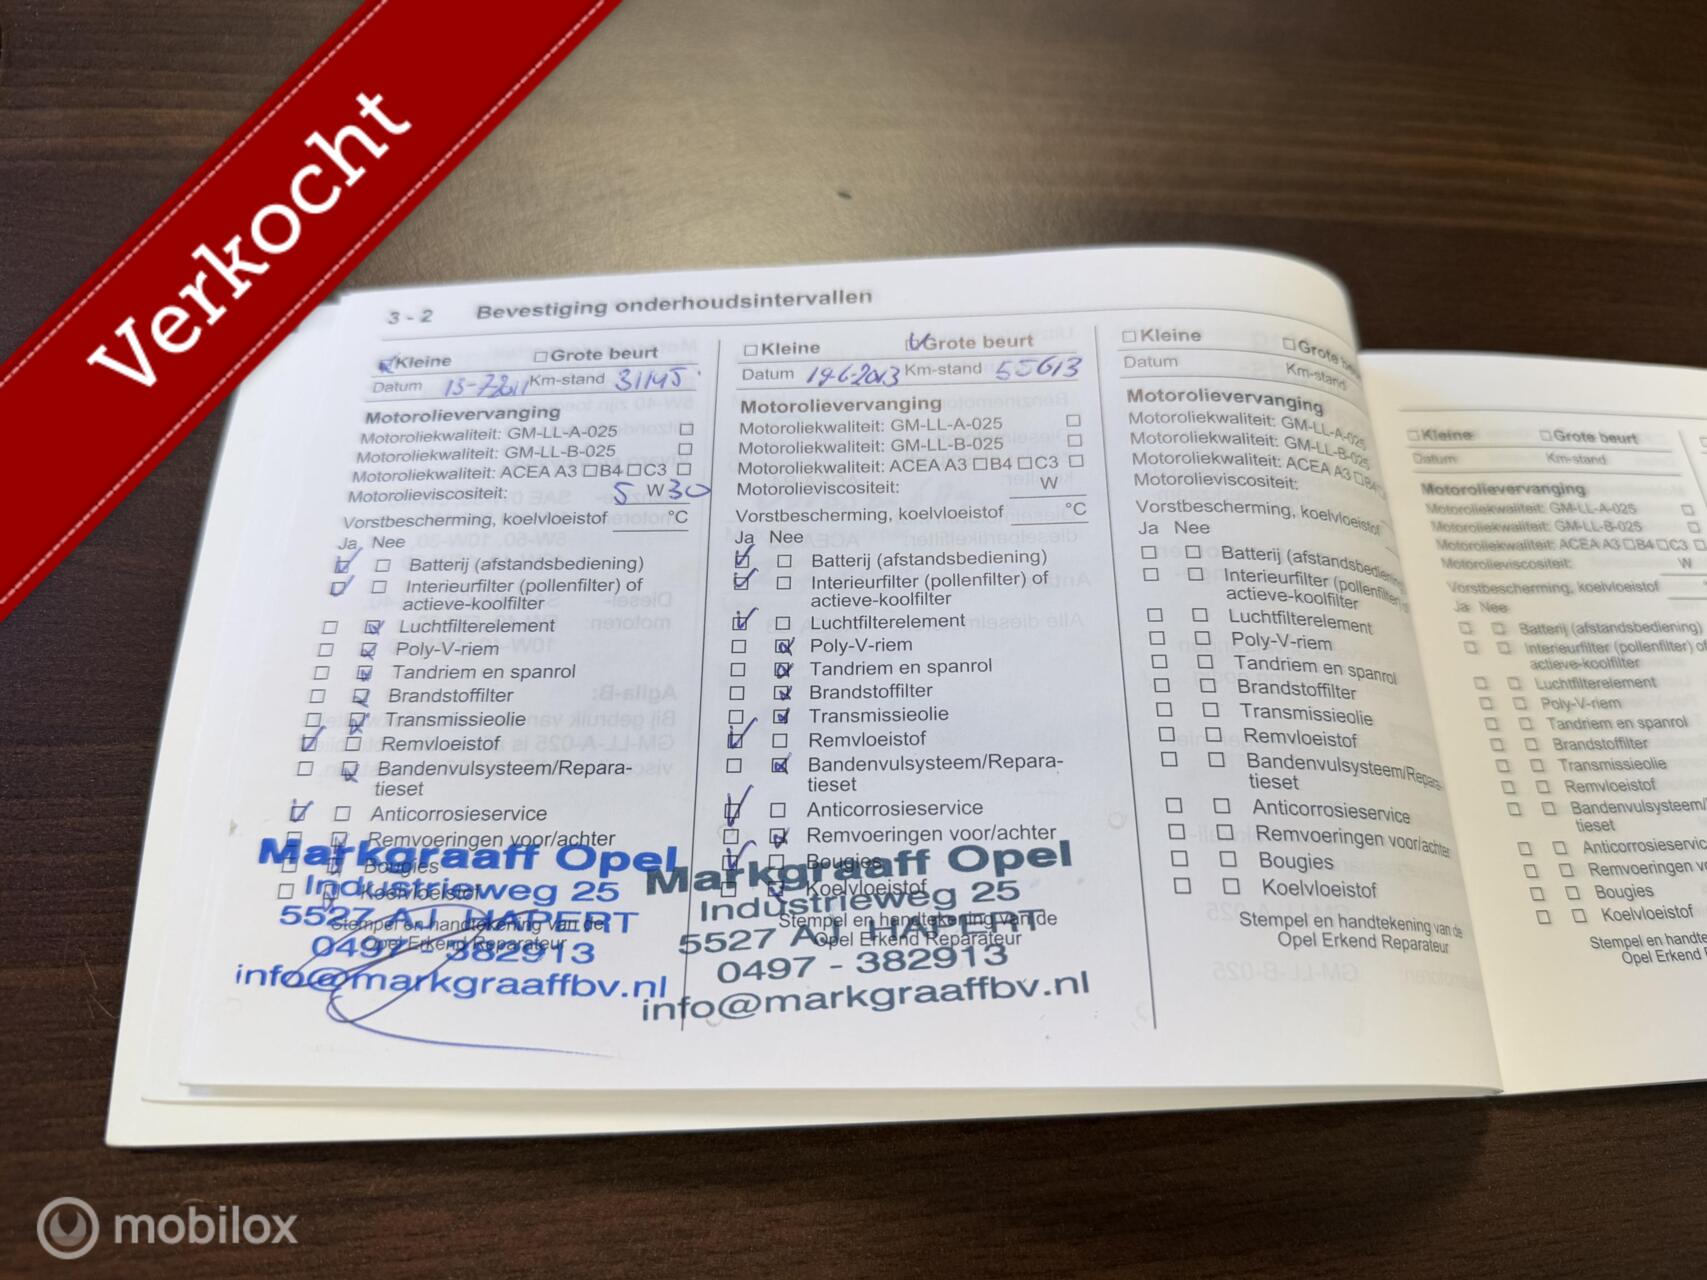 Verkocht
3 - 2 Bevestiging onderhoudsintervallen
Kleine Grote beurt
Datum 13-7-2011 Km-stand 31145
Motorolievervanging
Motoroliekwaliteit: GM-LL-A-025
Motoroliekwaliteit: GM-LL-B-025
Motoroliekwaliteit: ACEA A3 B4 C3
Motorolieviscositeit: 5 W 30
Vorstbescherming, koelvloeistof °C
Ja Nee
Batterij (afstandsbediening)
Interieurfilter (pollenfilter) of
actieve-koolfilter
Luchtfilterelement
Poly-V-riem
Tandriem en spanrol
Brandstoffilter
Transmissieolie
Remvloeistof
Bandenvulsysteem/Repara-
tieset
Anticorrosieservice
Remvoeringen voor/achter
Bougies
Koelvloeistof
Stempel en handtekening van de
Opel Erkend Reparateur
Markgraaff Opel
Industrieweg 25
5527 AJ HAPERT
0497 - 382913
info@markgraaffbv.nl
Kleine Grote beurt
Datum 19-6-2013 Km-stand 55613
Motorolievervanging
Motoroliekwaliteit: GM-LL-A-025
Motoroliekwaliteit: GM-LL-B-025
Motoroliekwaliteit: ACEA A3 B4 C3
Motorolieviscositeit: W
Vorstbescherming, koelvloeistof °C
Ja Nee
Batterij (afstandsbediening)
Interieurfilter (pollenfilter) of
actieve-koolfilter
Luchtfilterelement
Poly-V-riem
Tandriem en spanrol
Brandstoffilter
Transmissieolie
Remvloeistof
Bandenvulsysteem/Repara-
tieset
Anticorrosieservice
Remvoeringen voor/achter
Bougies
Koelvloeistof
Stempel en handtekening van de
Opel Erkend Reparateur
Markgraaff Opel
Industrieweg 25
5527 AJ HAPERT
0497 - 382913
info@markgraaffbv.nl
Kleine Grote beurt
Datum Km-stand
Motorolievervanging
Motoroliekwaliteit: GM-LL-A-025
Motoroliekwaliteit: GM-LL-B-025
Motoroliekwaliteit: ACEA A3 B4
Motorolieviscositeit:
Vorstbescherming, koelvloeistof
Ja Nee
Batterij (afstandsbediening)
Interieurfilter (pollenfilter) of
actieve-koolfilter
Luchtfilterelement
Poly-V-riem
Tandriem en spanrol
Brandstoffilter
Transmissieolie
Remvloeistof
Bandenvulsysteem/Repara-
tieset
Anticorrosieservice
Remvoeringen voor/achter
Bougies
Koelvloeistof
Stempel en handtekening van de
Opel Erkend Reparateur
Kleine Grote beurt
Datum Km-stand
Motorolievervanging
Motoroliekwaliteit: GM-LL-A-025
Motoroliekwaliteit: GM-LL-B-025
Motoroliekwaliteit: ACEA A3 B4 C3
Motorolieviscositeit: W
Vorstbescherming, koelvloeistof
Ja Nee
Batterij (afstandsbediening)
Interieurfilter (pollenfilter) of
actieve-koolfilter
Luchtfilterelement
Poly-V-riem
Tandriem en spanrol
Brandstoffilter
Transmissieolie
Remvloeistof
Bandenvulsysteem/
tieset
Anticorrosieservic
Remvoeringen v
Bougies
Koelvloeistof
Stempel en handte
Opel Erkend
mobilox